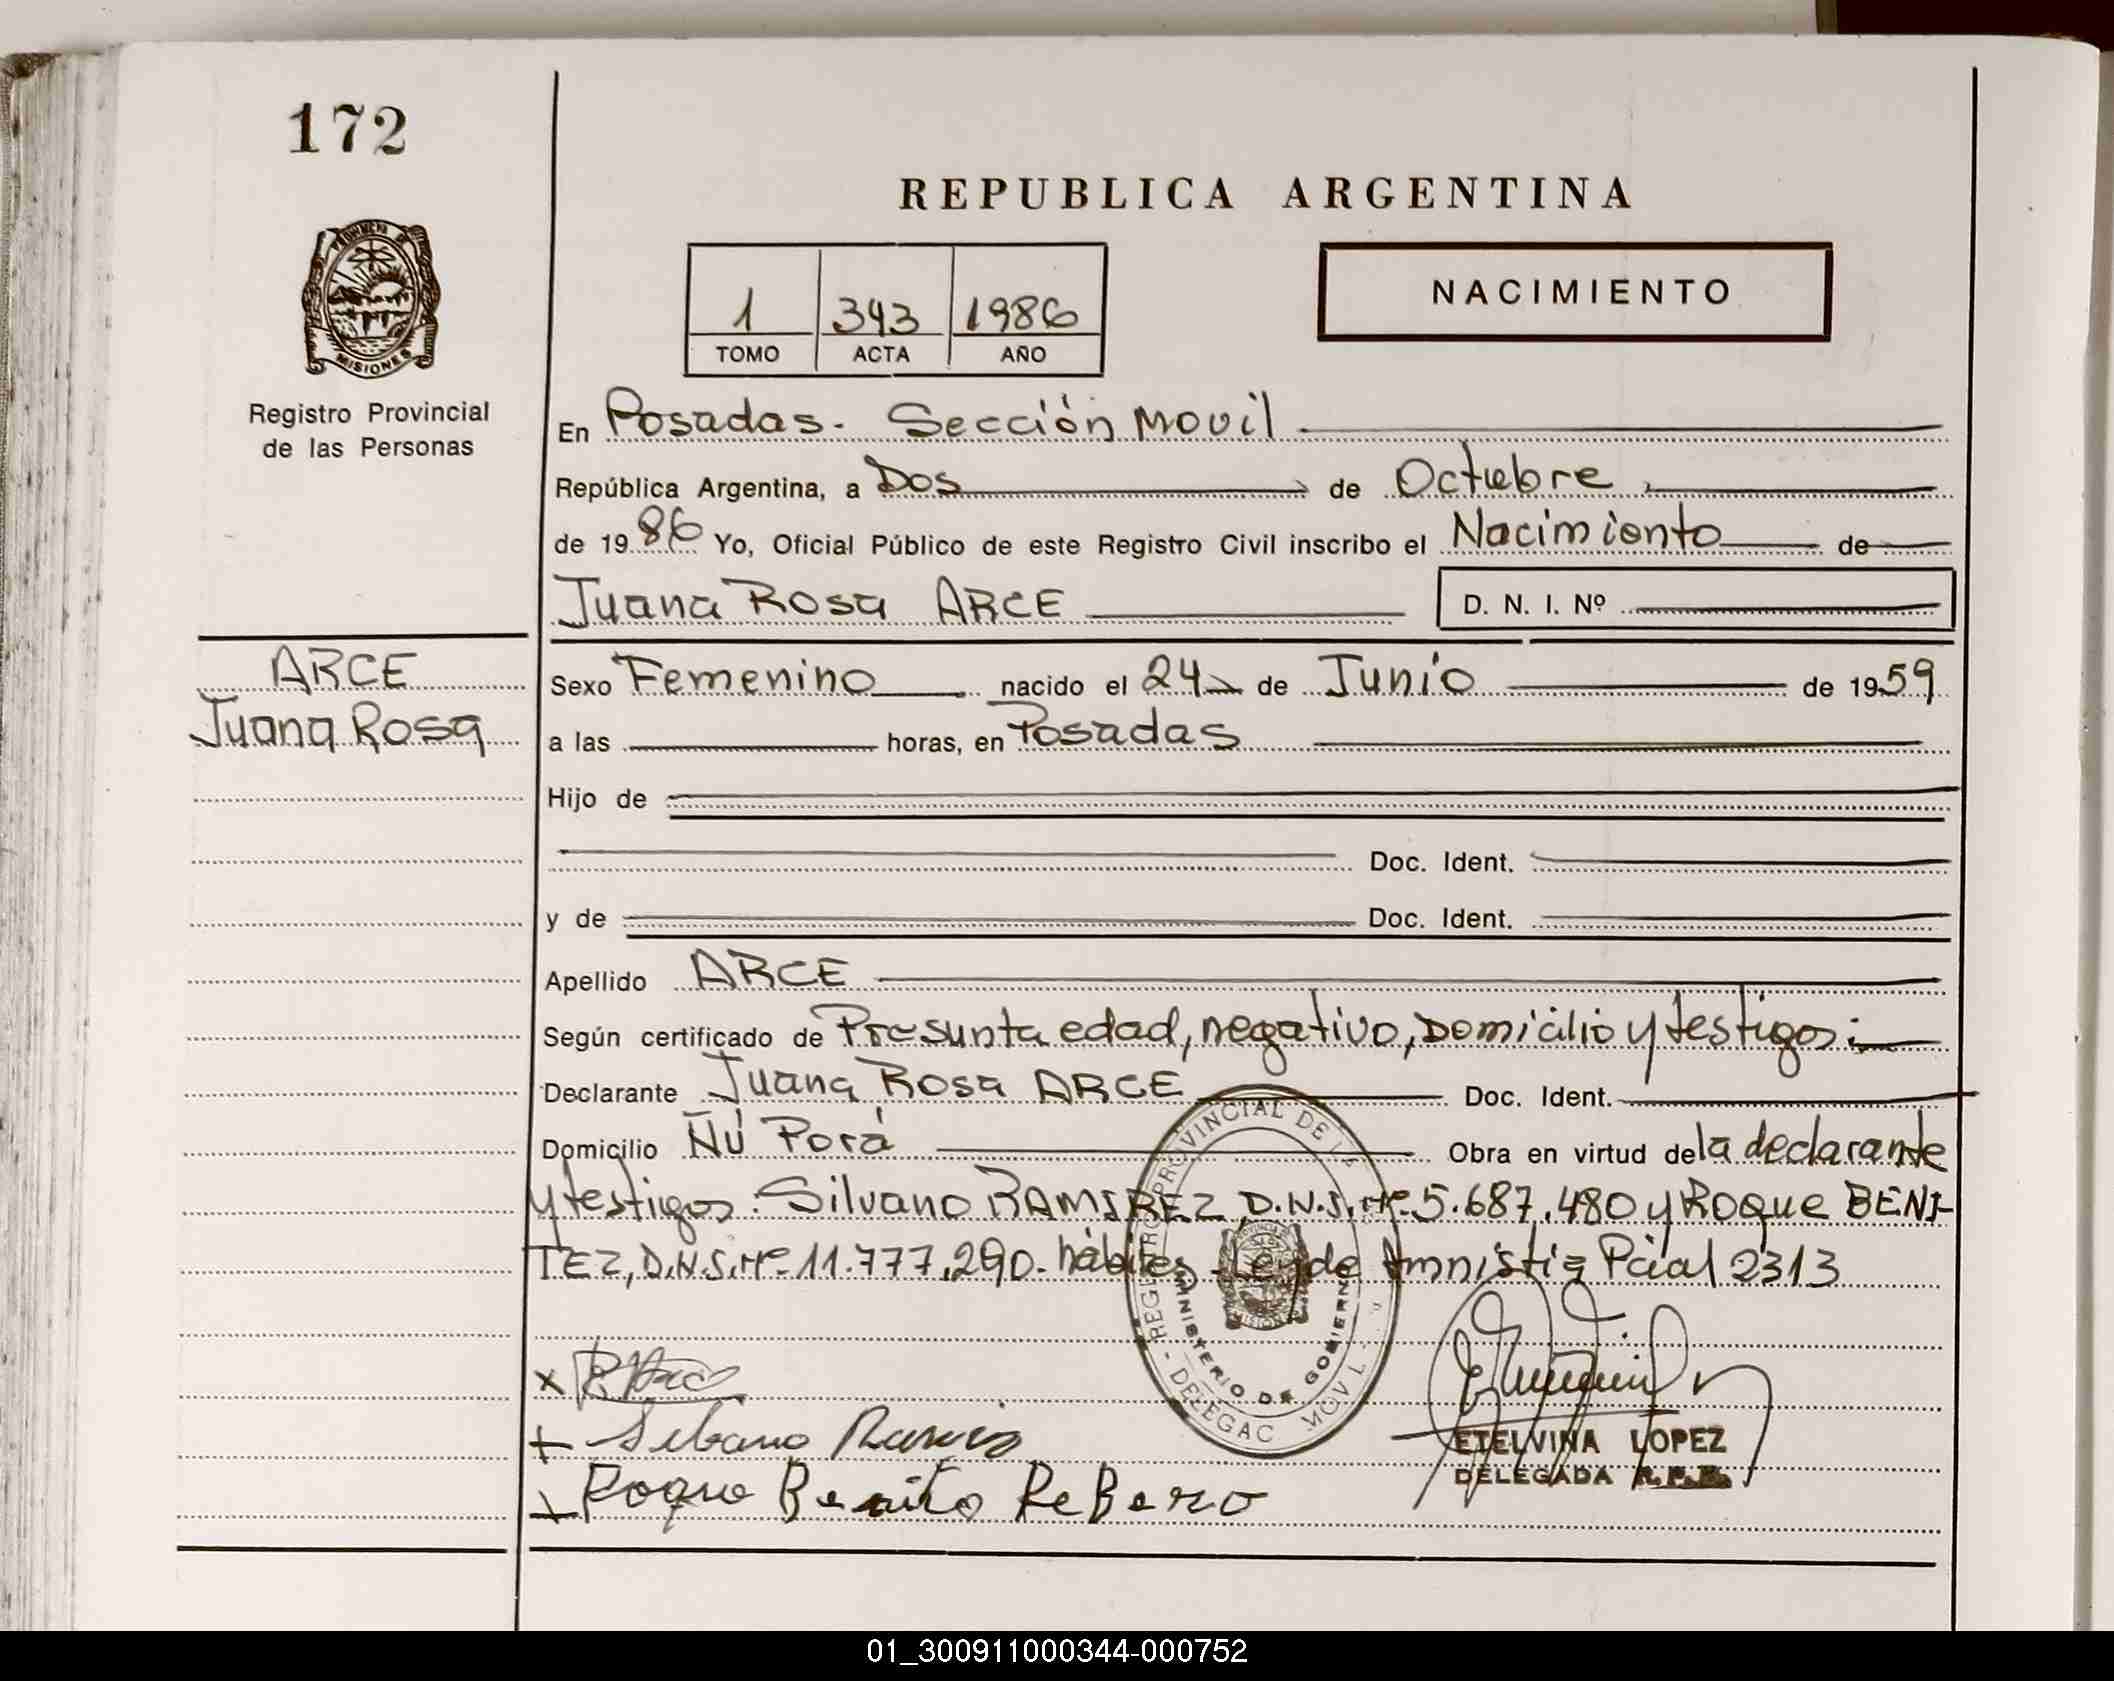 172
REPUBLICA ARGENTINA
PROVINCIA DE
MISIONES
Registro Provincial
de las Personas
1 343 1986
TOMO ACTA AÑO
NACIMIENTO
En Posadas - Sección Movil
República Argentina, a Dos de Octubre
de 1986 Yo, Oficial Público de este Registro Civil inscribo el Nacimiento de
Juana Rosa ARCE D. N. I. Nº
ARCE
Juana Rosa
Sexo Femenino nacido el 24 de Junio de 1959
a las horas, en Posadas
Hijo de
Doc. Ident.
y de Doc. Ident.
Apellido ARCE
Según certificado de Presunta edad, negativo, Domicilio y testigos:
Declarante Juana Rosa ARCE Doc. Ident.
Domicilio Ñú Porá Obra en virtud de la declarante
y testigos: Silvano RAMIREZ D.N.I. Nº 5.687.480 y Roque BENI-
TEZ, D.N.I. Nº 11.777.290 - hábiles - Ley de Amnistia Pcial 2313
REGISTRO PROVINCIAL DE
MINISTERIO DE GOBIERNO
DELEGAC MOVIL
Roque Benito ReBero
ETELVINA LOPEZ
DELEGADA R.P.P.
01_300911000344-000752